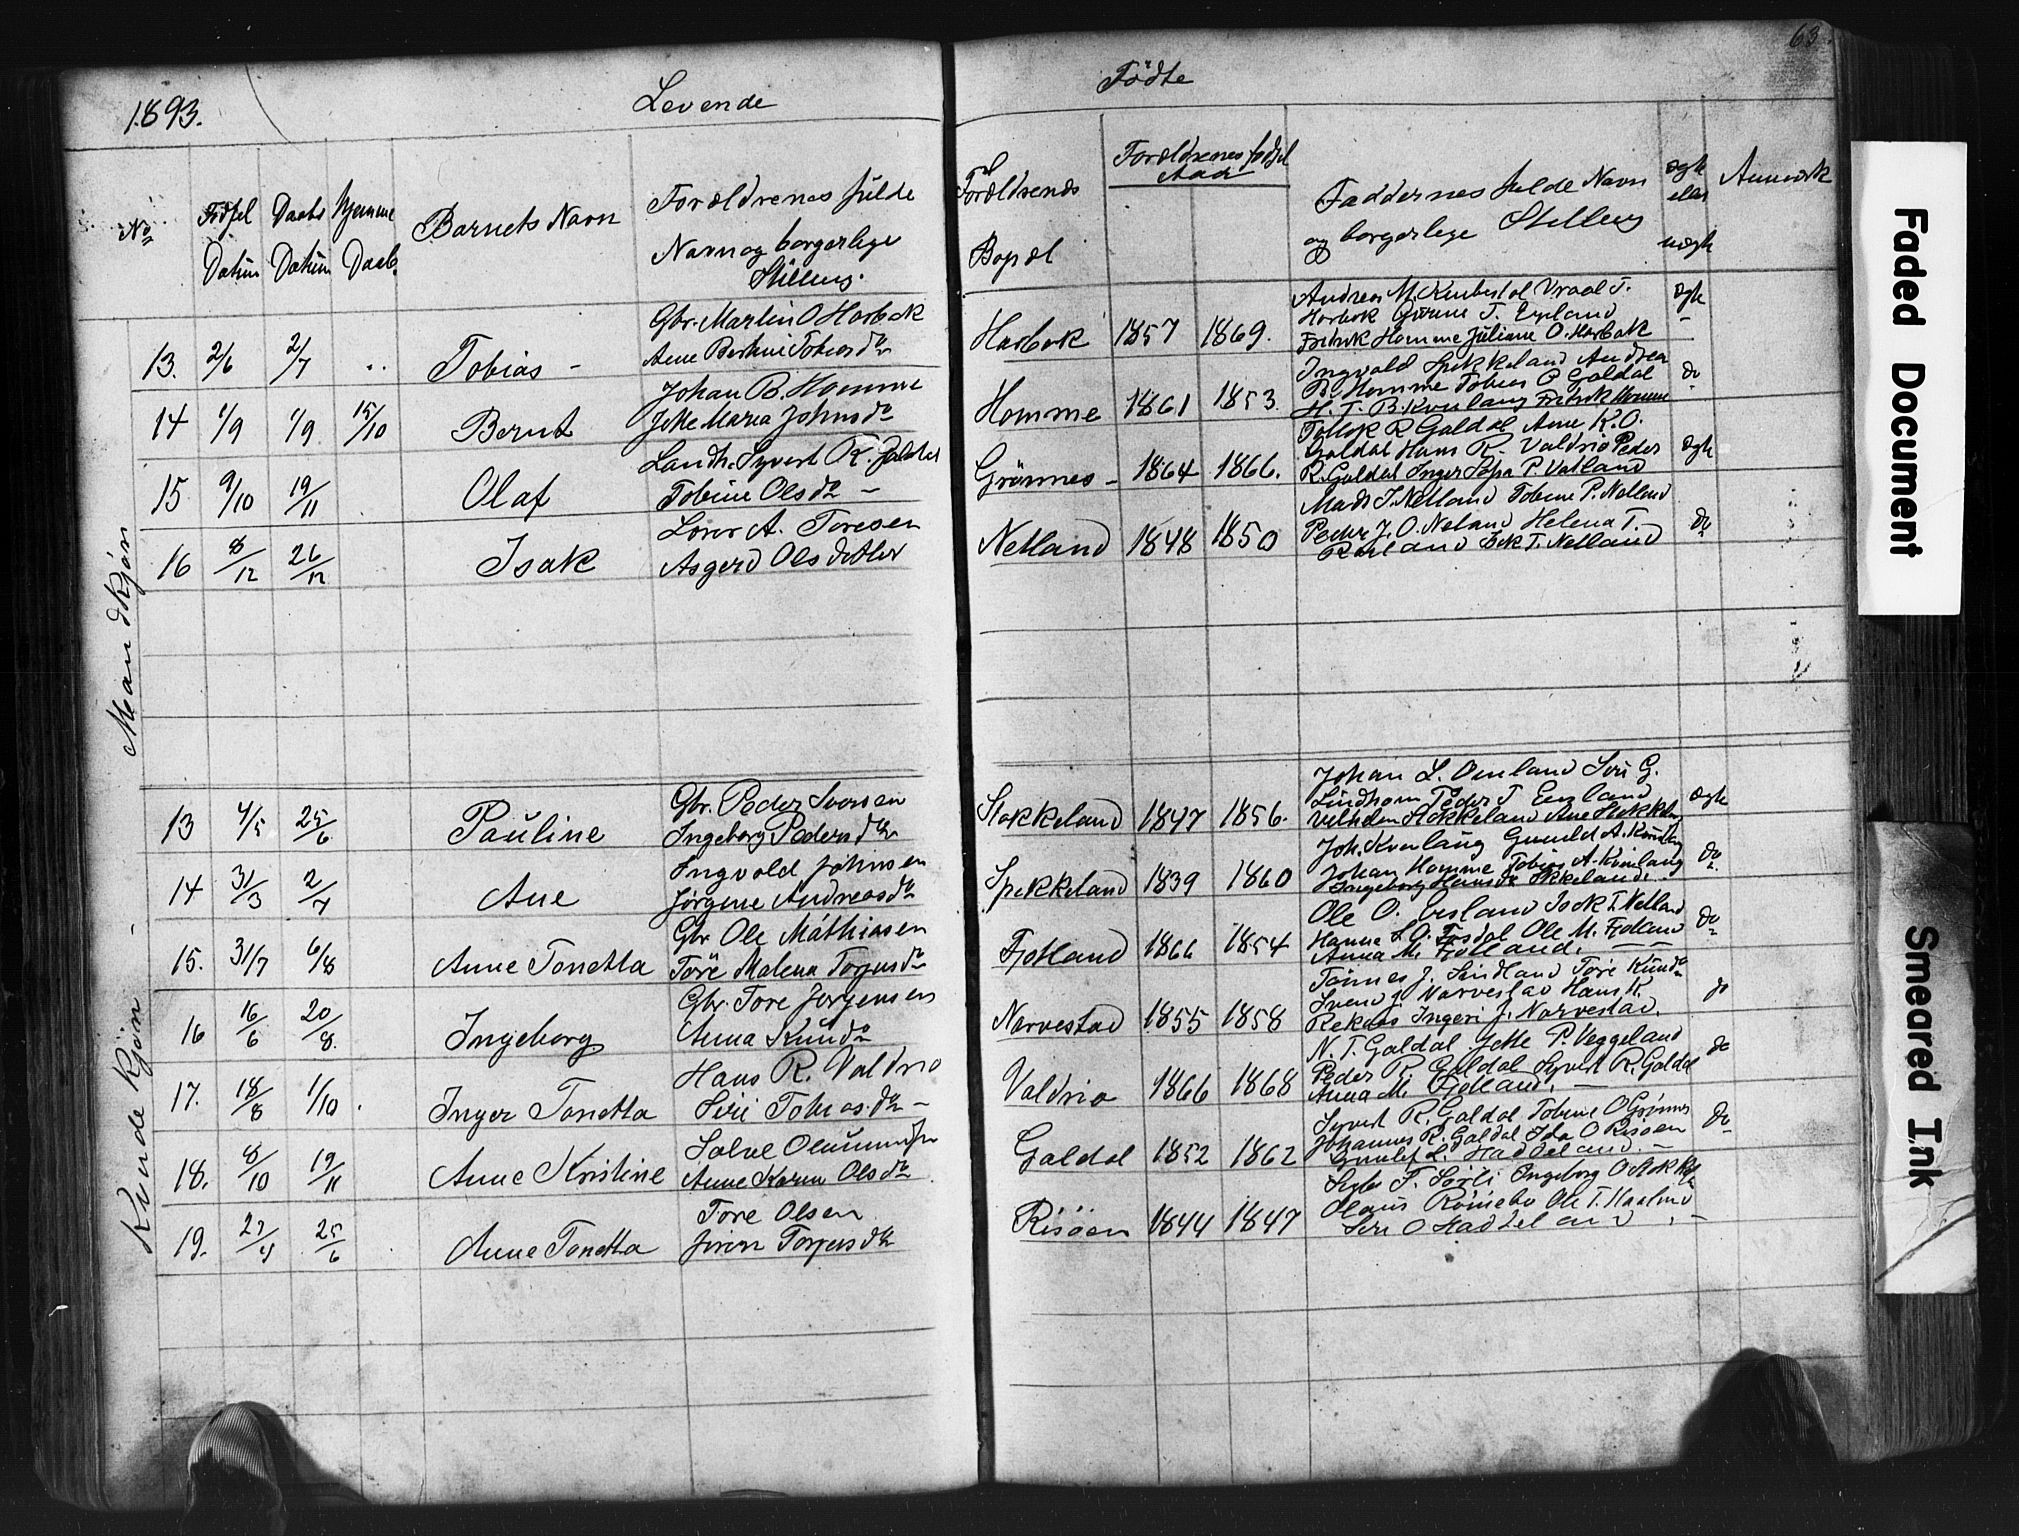 1893.
Levende
Fødte
63.
No
Fødsel Datum
Daabs Datum
Hjemme Daab.
Barnets Navn
Forældrenes fulde
Navn og borgerlige
Stilling.
Forældrenes
Bopæl
Forældrenes fødsel
Aar
Faddernes fulde Navn
og borgerlige Stilling
ægte
eller
uægte
Anmærk
Mandkjøn
13. 2/6 2/7 Tobias - Gbr. Martin O Harbak
Ane Bertine Tobiasdr
Harbak 1857 1869.
Andreas M. Kvinlaug Vraal T.
Harbak
Fredrik Homme Juliane O. Harbak
ægte
14 1/9 1/9 15/10 Bernt Johan B. Homme
Jette Maria Johnsdr
Homme 1861 1853.
Ingvald Spikkeland Andrea
B. Homme Tobias P Galdal
H. T. B. Kvinlaug Fredrik Homme
do
15 9/10 19/11 Olaf Landh. Syvert R. Galdal
Tobine Olsdr -
Grønnes - 1864 1866.
Tollak R Galdal Ane K. O.
Galdal Hans R. Valdrio Peder
R. Galdal Inger Sofia P. Vatland
ægte
16 8/12 26/12 Isak A. Toresen
Asgerd Olsdatter
Netland 1848 1850
Mads J. Netland Tobine P. Netland
Peder J. O. Neland Helena T.
T. Netland
do
Kvinde Kjøn -
13 4/5 25/6 Pauline Gbr. Peder Sversen
Ingeborg Pedersdtr
Stokkeland 1847 1856.
Johan L. Omland Siri G.
Lindhom Peder T
Stokkeland Ane Stokkeland
ægte
14 31/3 2/7 Ane Ingvald Johnsen
Jørgine Andreasdr
Spikkeland 1839 1860
Joh. Kvinlaug Gunild A. Kvinlaug
Johan Homme Tobias A. Kvinlaug
Ingeborg
do
15. 31/7 6/8 Anne Tonetta Gbr Ole Mathiasen
Tore Malena Torjusdr
Fjotland 1866 1854
Ole O. Isak T. Netland
Hanne Ole M. Fjotland
Anna M. Fjotland.
do
16 16/6 20/8. Ingeborg Gbr. Tore Jørgensen
Anna Knudr
Narvestad 1855 1858
Tønnes J. Sindland Tore Knudr
Svend J. Narvestad Hans K.
Ingeri J. Narvestad.
do
17. 18/8 1/10. Inger Tonetta Hans R. Valdrio
Siri Tobiasdr -
Valdrio 1866 1868
N. T. Galdal Jette P. Veggeland
Peder R. Galdal Syvert R. Galdal
Anna M. Fjotland. -
do
18. 8/10 19/11 Anne Kristine Salve
Anne Karin Olsdr
Galdal 1852 1862
Syvert R. Galdal Tobine O Grønnes
Johannes R. Galdal Ida O Risøen
Gunlef L. Haddeland. -
do
19. 27/4 25/6 Anne Tonetta Tore Olsen
Torjusdtr
Risøen 1844 1847
F. Sørli Ingeborg O Stokkeland
Olaus Ole T.
Siri O Haddeland. -
Faded Document
Smeared Ink